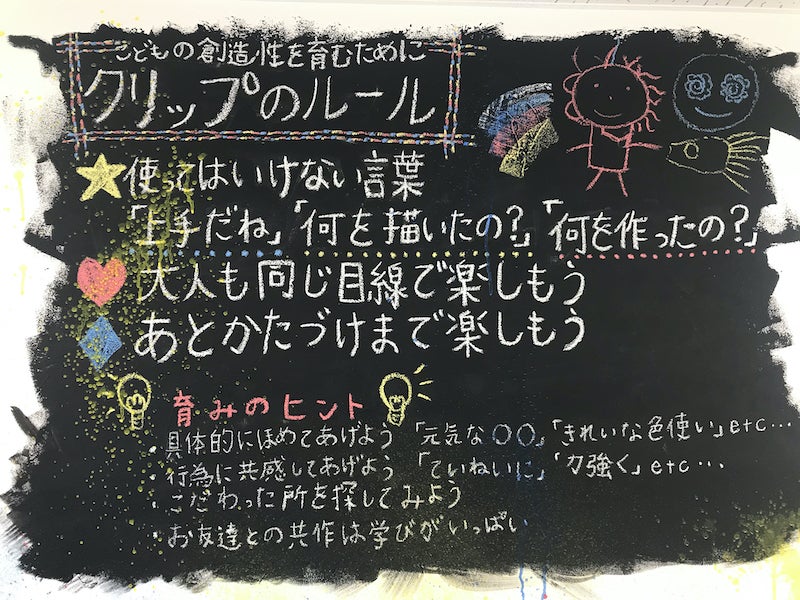 こどもの創造性を育むために
クリップのルール
使ってはいけない言葉
「上手だね」「何を描いたの？」「何を作ったの？」
大人も同じ目線で楽しもう
あとかたづけまで楽しもう
育みのヒント
・具体的にほめてあげよう 「元気な〇〇」「きれいな色使い」etc…
・行為に共感してあげよう 「ていねいに」「力強く」etc…
・こだわった所を探してみよう
・お友達との共作は学びがいっぱい